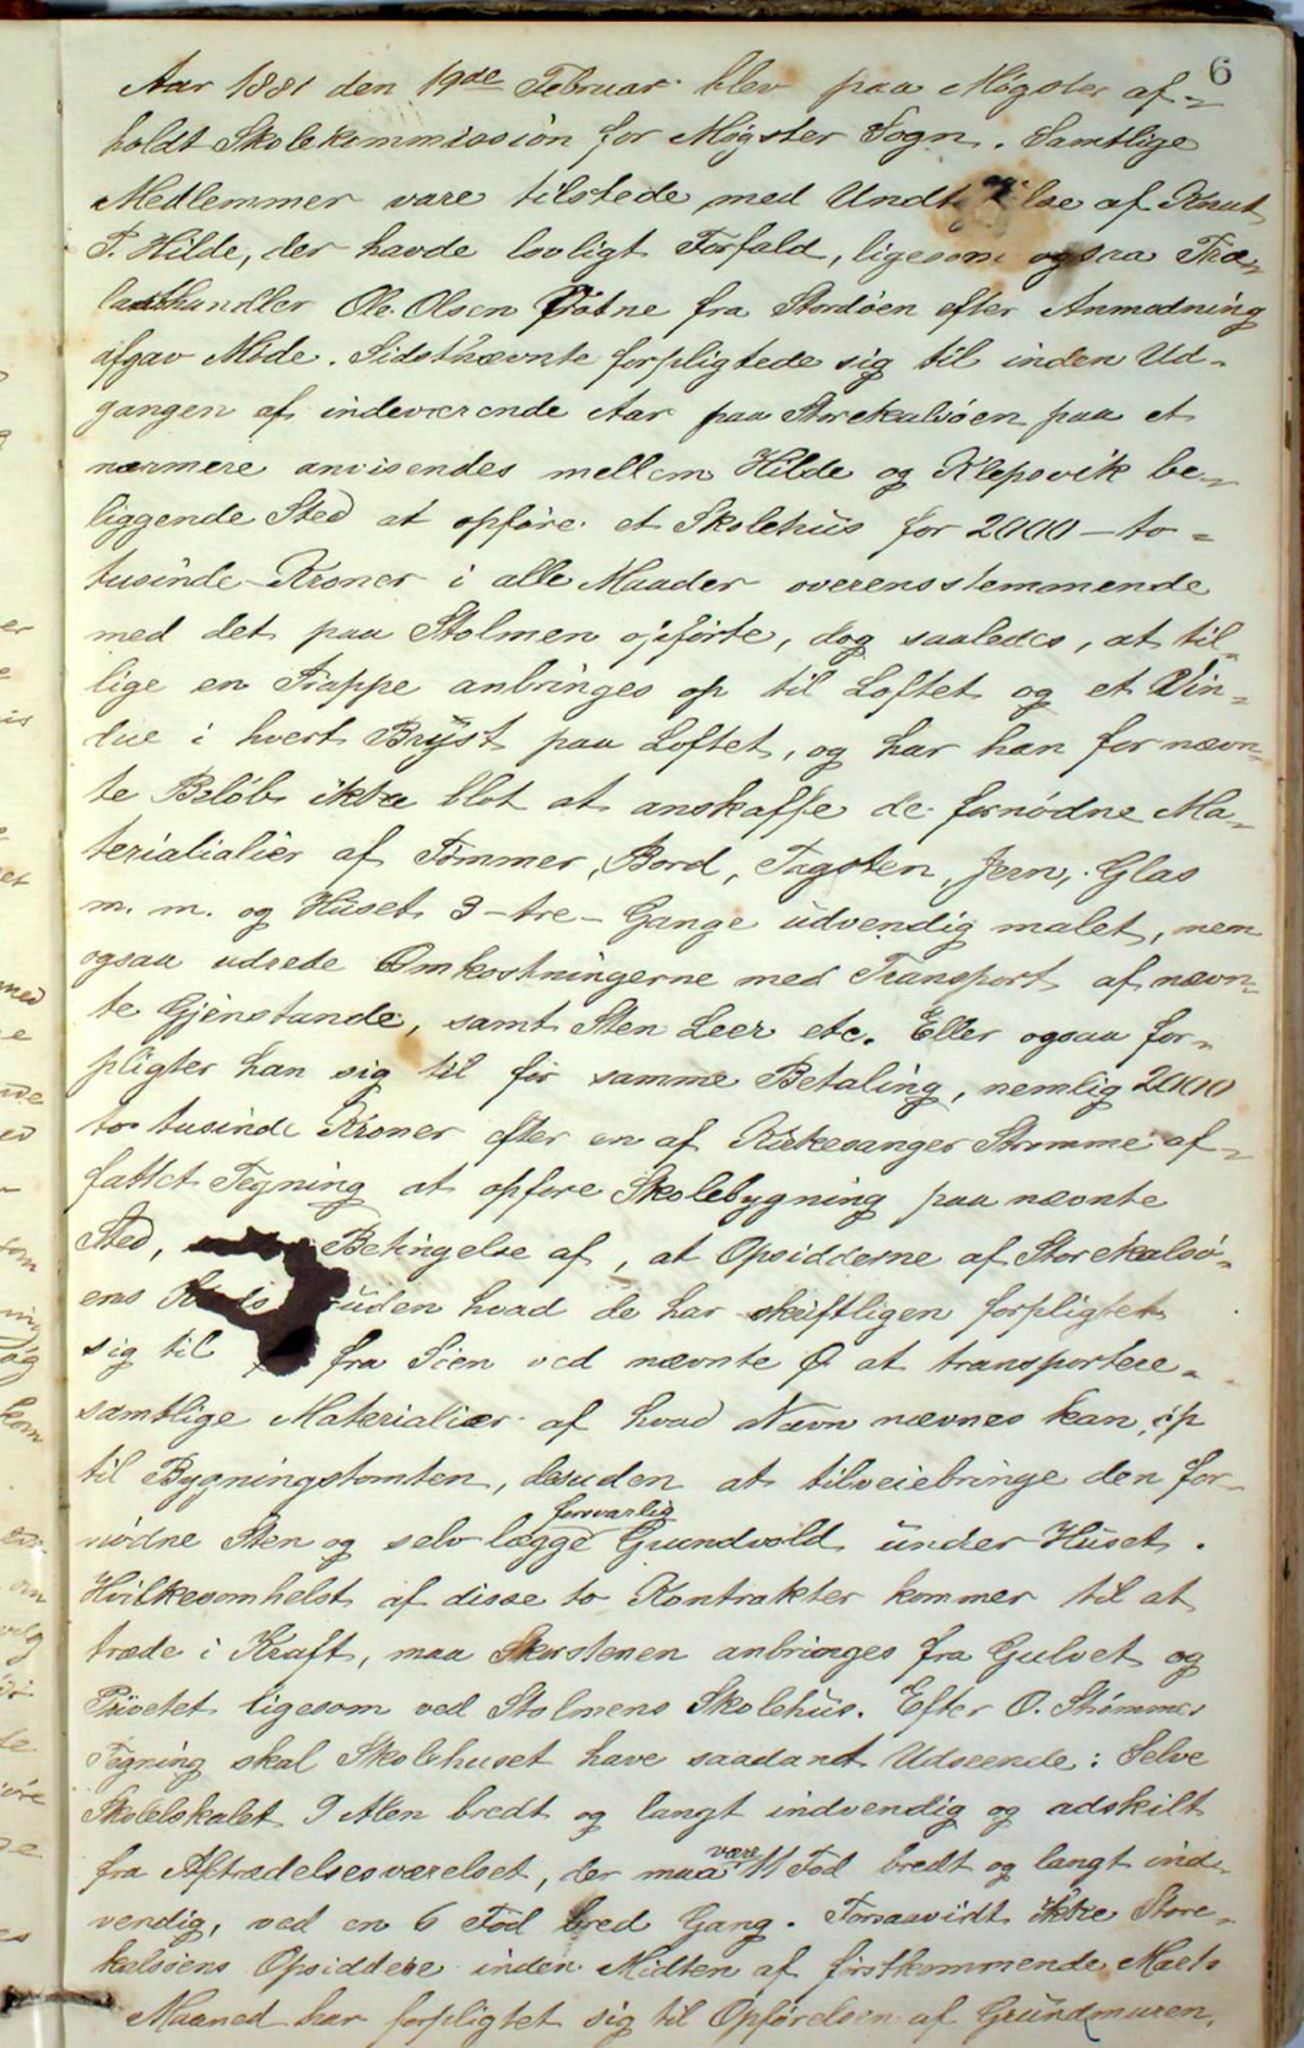 6
Aar 1881 den 19de Februar blev paa Møgster af-
holdt Skolekommission for Møgster Sogn. Samtlige
Medlemmer vare tilstede med Undtagelse af Knut
P. Hilde, der havde lovligt Forfald, ligesom ogsaa Træ-
lasthandler Ole Olsen fra Stordøen efter Anmodning
afgav Møde. Sidstnævnte forpligtede sig til inden Ud-
gangen af indeværende Aar paa Storekalsøen paa et
nærmere anvisendes mellem Hilde og Klepsvik be-
liggende Sted at opføre et Skolehus for 2000 - to-
tusinde - Kroner i alle Maader overensstemmende
med det paa Stolmen opførte, dog saaledes, at til-
lige en Trappe anbringes op til Loftet og et Vin-
due i hvert Bryst paa Loftet, og har han for nævn-
te Beløb ikke blot at anskaffe de fornødne Ma-
terialialier af Tømmer, Bord, Tagsten, Jern, Glas
m. m. og Huset 3 - tre - Gange udvendig malet, men
ogsaa udrede Omkostningerne med Transport af nævn-
te Gjenstande, samt Sten Leer etc. Eller ogsaa for-
pligter han sig til for samme Betaling, nemlig 2000
to tusinde Kroner efter en af Kirkesanger Strømme af-
fattet Tegning at opføre Skolebygning paa nævnte
Sted, Betingelse af, at Opsidderne af Storekalsø-
ens uden hvad de har skriftligen forpligtet
sig til fra Søen ved nævnte Ø at transportere
samtlige Materialier af hvad Navn nævnes kan, op
til Bygningstomten, desuden at tilveiebringe den for-
nødne Sten og selv lægge forsvarlig Grundvold under Huset.
Hvilkesomhelst af disse to Kontrakter kommer til at
træde i Kraft, maa Skorstenen anbringes fra Gulvet og
Privetet ligesom ved Stolmens Skolehus. Efter O. Strømmes
Tegning skal Skolehuset have saadant Udseende: Selve
Skolelokalet 9 Alen bredt og langt indvendig og adskilt
fra Aftrædelsesværelset, der maa være 11 Fod bredt og langt ind-
vendig, ved en 6 Fod bred Gang. Forsaavidt ikke Store-
kalsøens Opsiddere inden Midten af førstkommende Marts
Maaned har forpligtet sig til Opførelsen af Grundmuren,